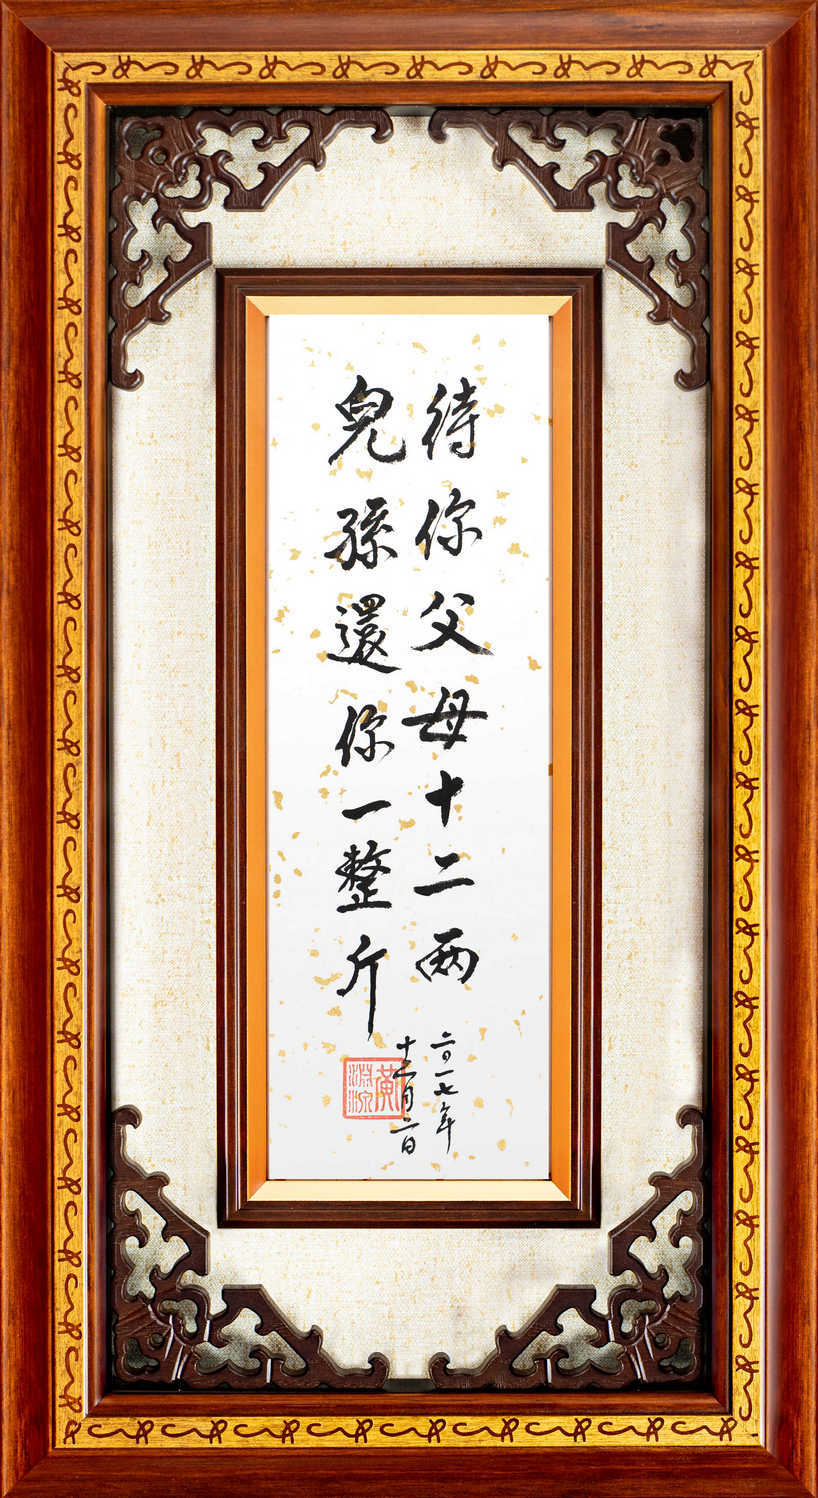 待你父母十二两
兒孫還你一整斤
二〇一七年
十二月二日